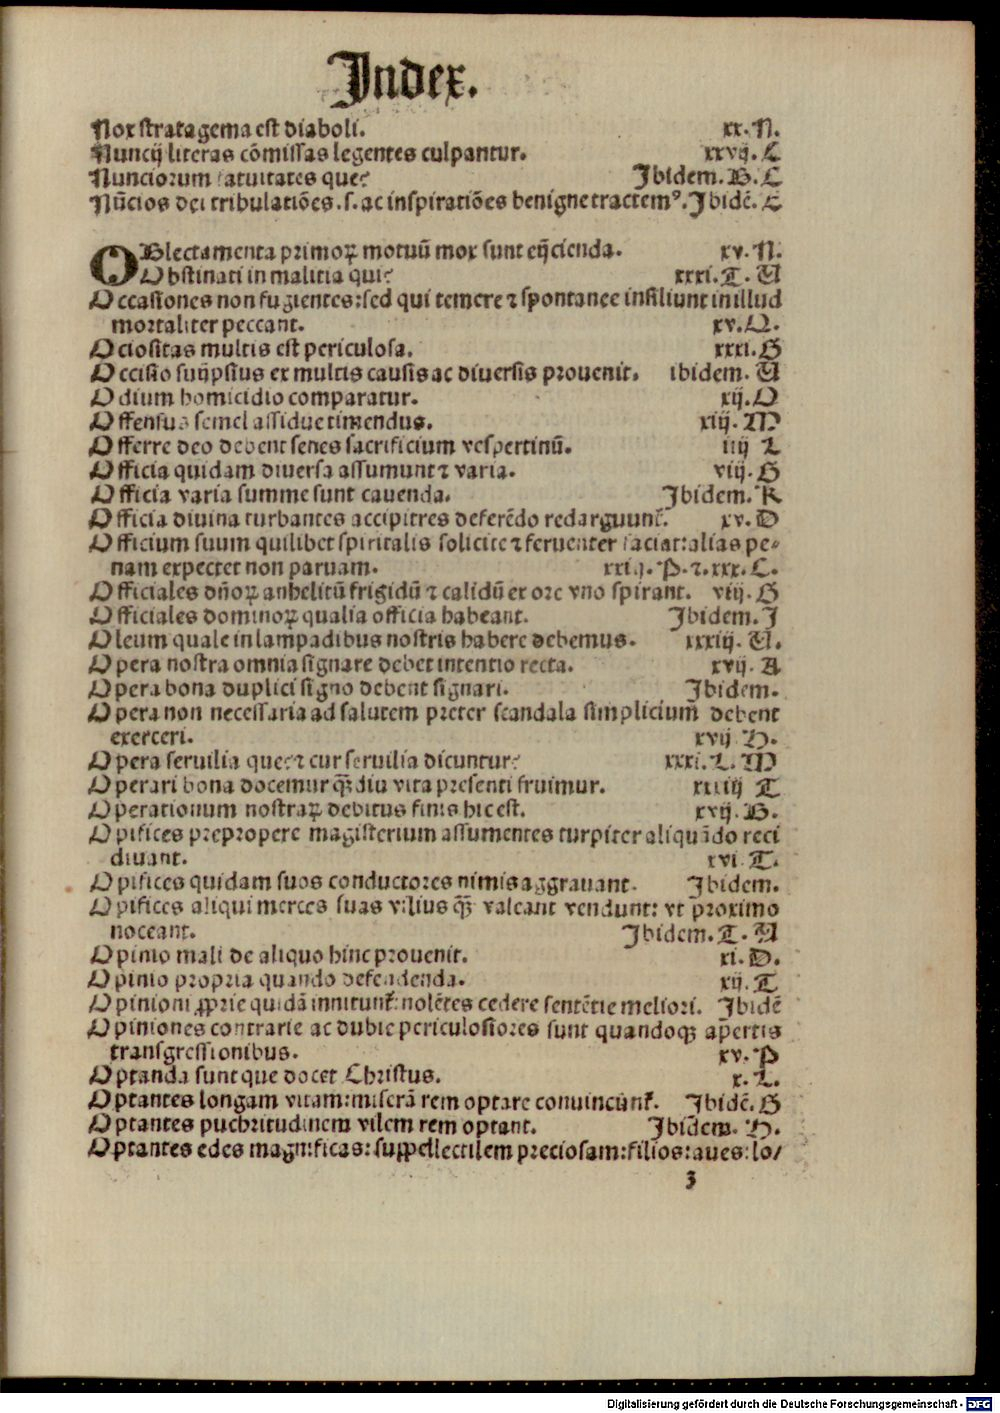 Index.
Nox stratagema est diaboli. xx. N.
Nuncij literas cōmissas legentes culpantur. xxvij. C
Nunciorum fatuitates que? Ibidem. B. C
Nūcios dei tribulatiōes. s. ac inspiratiōes benigne tractemꝰ. Ibidē. C
OBlectamenta primoꝝ motuū mox sunt eijcienda. xv. N.
Obstinati in malitia qui? xxxi. T. U
Occasiones non fugientes: sed qui temere ⁊ spontanee insiliunt in illud
mortaliter peccant. xv. Q.
Ociositas multis est periculosa. xxxi. G
Occisio suijpsius ex multis causis ac diuersis prouenit. ibidem. U
Odium homicidio comparatur. xij. O
Offensus semel assidue timendus. xiij. M
Offerre deo debent senes sacrificium vespertinū. iiij L
Officia quidam diuersa assumunt ⁊ varia. viij. G
Officia varia summe sunt cauenda. Ibidem. K
Officia diuina turbantes accipitres deferēdo redarguunt᷑. xv. D
Officium suum quilibet spiritalis solicite ⁊ feruenter faciat: alias pe⸗
nam expectet non paruam. xxiij. P. ⁊. xxx. C.
Officiales dn̄oꝝ anhelitū frigidū ⁊ calidū ex ore vno spirant. viij. G
Officiales dominoꝝ qualia officia habeant. Ibidem. I
Oleum quale in lampadibus nostris habere debemus. xxxiij. U.
Opera nostra omnia signare debet intentio recta. xvij. A
Opera bona duplici signo debent signari. Ibidem.
Opera non necessaria ad salutem preter scandala simplicium debent
exerceri. xvij H.
Opera seruilia que? ⁊ cur seruilia dicuntur? xxxi. L. M
Operari bona docemur qȝdiu vita presenti fruimur. xxiiij T
Operationum nostraꝝ debitus finis hic est. xvij. B.
Opifices prepropere magisterium assumentes turpiter aliquādo reci
diuant. xvi. T.
Opifices quidam suos conductores nimis aggrauant. Ibidem.
Opifices aliqui merces suas vilius qȝ valeant vendunt: vt proximo
noceant. Ibidem. T. U
Opinio mali de aliquo hinc prouenit. xi. D.
Opinio propria quando defendenda. xij. T
Opinioni ꝓprie quidā innitunt᷑: nolētes cedere sentētie meliori. Ibidē
Opiniones contrarie ac dubie periculosiores sunt quandoqȝ apertis
transgressionibus. xv. P
Optanda sunt que docet Christus. x. L.
Optantes longam vitam: miserā rem optare conuincunt᷑. Ibidē. G
Optantes puchritudinem vilem rem optant. Ibidem. H.
Optantes edes magnificas: suppellectilem preciosam: filios: aues: lo/
3
Digitalisierung gefördert durch die Deutsche Forschungsgemeinschaft - DFG